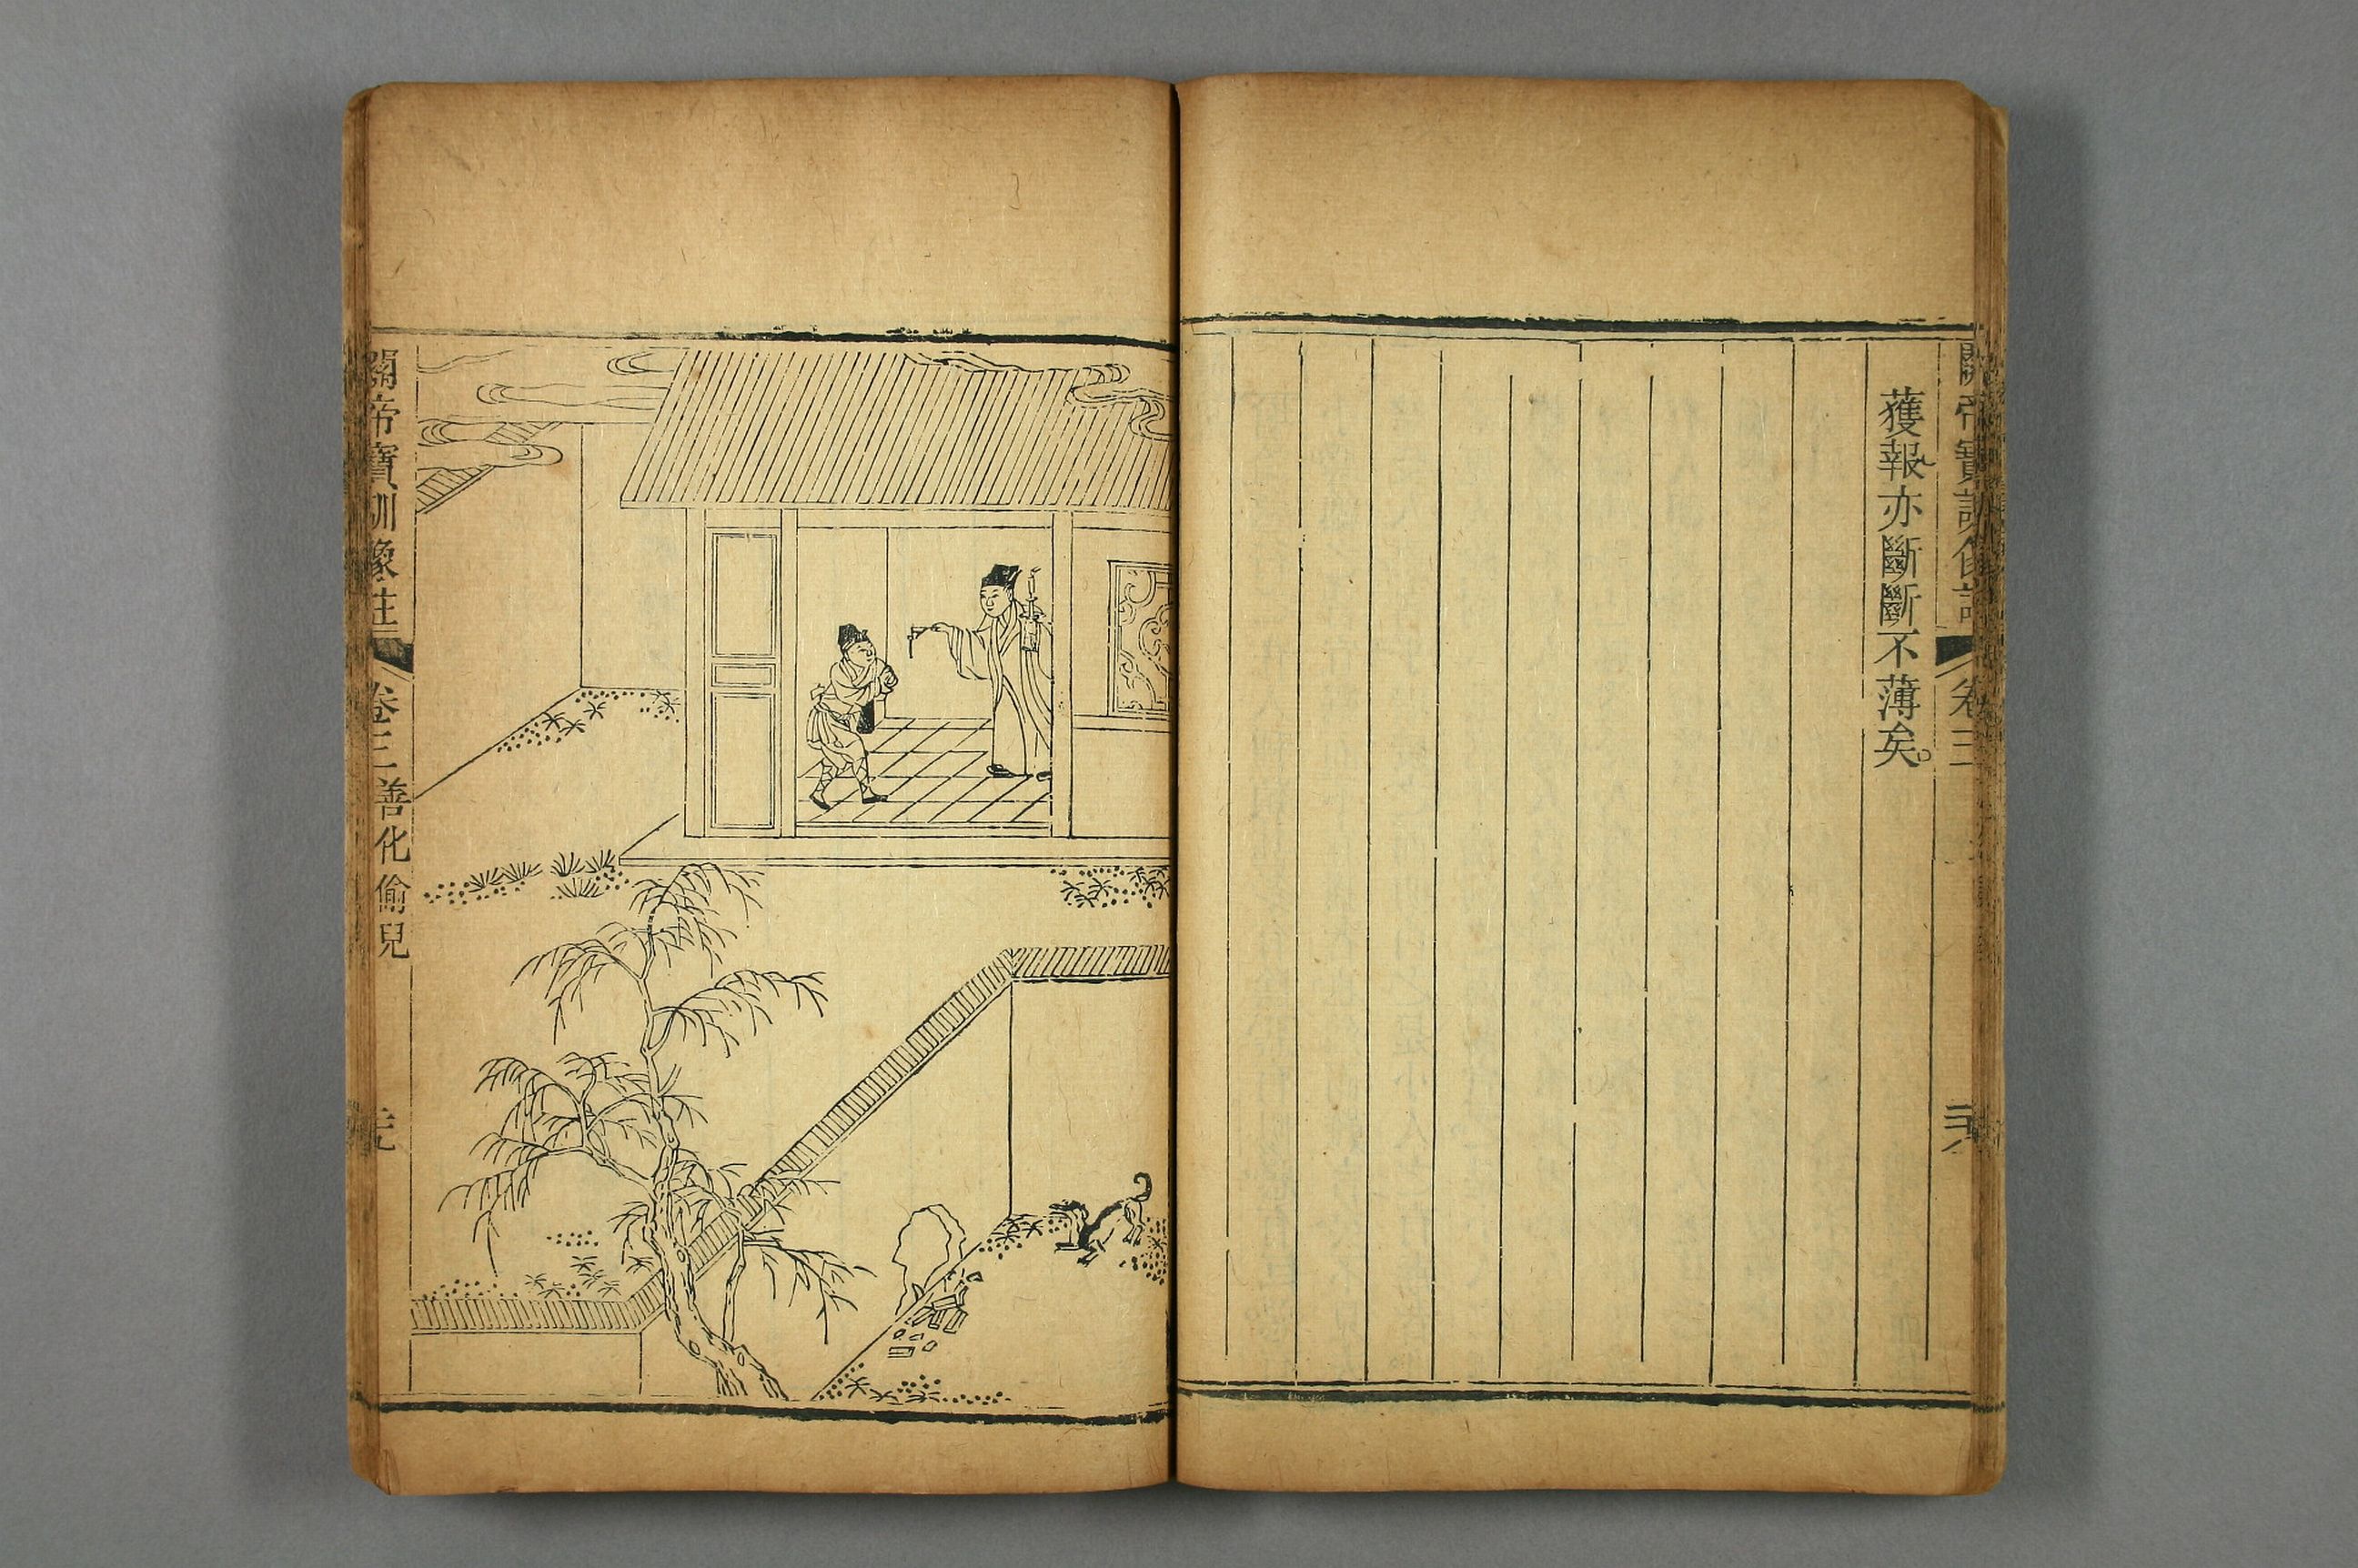 關帝寶訓像註
卷三
獲報亦斷斷不薄矣。
關帝寶訓像註
卷三 善化偷兒